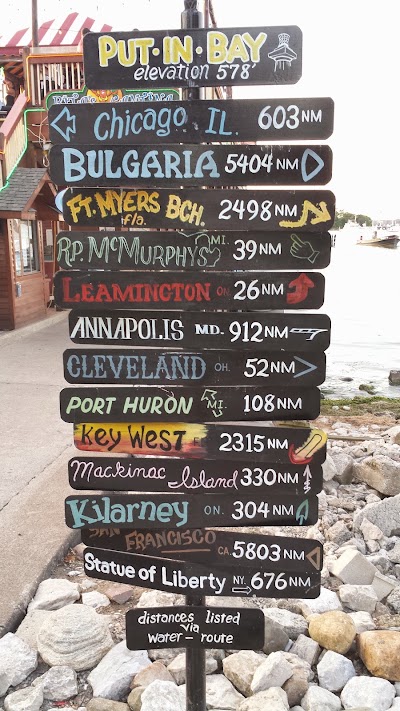 PUT-IN-BAY
elevation 578'
Chicago, IL. 603NM
BULGARIA 5404NM
FT. MYERS BCH. fla. 2498NM
RP. McMURPHYS MI. 39NM
LEAMINGTON ON 26NM
ANNAPOLIS MD. 912NM
CLEVELAND OH. 52NM
PORT HURON MI. 108NM
Key West 2315NM
Mackinac Island 330NM
Kilarney ON. 304NM
SAN FRANCISCO CA. 5803NM
Statue of Liberty NY. 676NM
distances listed
via
water-route